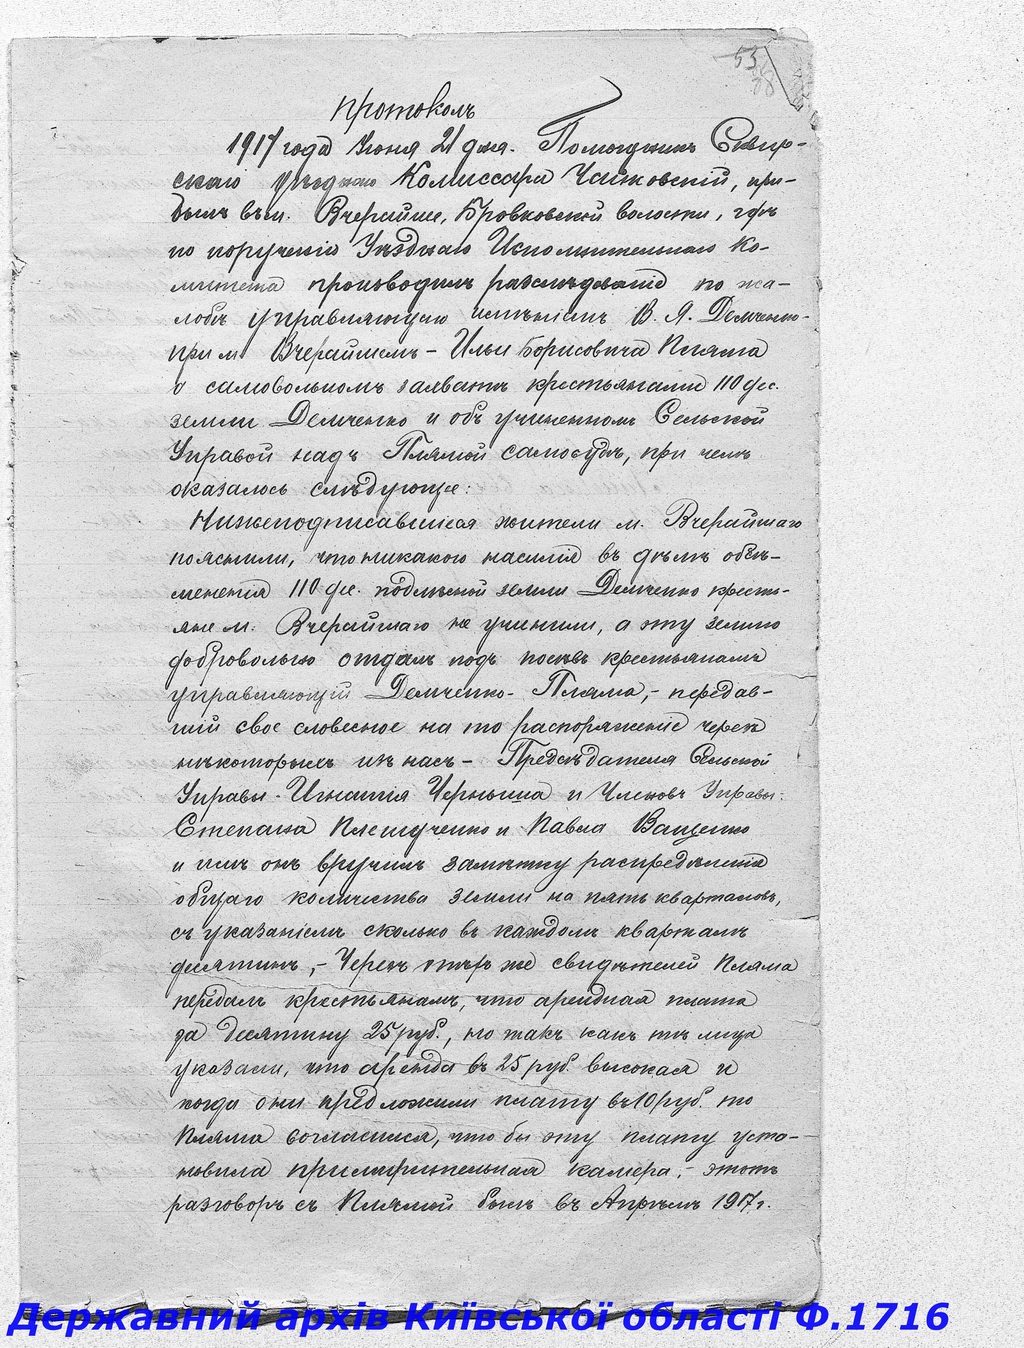 53
Протоколъ
1917 года Іюня 21 дня. Помощникъ Сквир-
скаго уѣзднаго Комиссара Чайковскій, при-
былъ въ м. Вчерайше, Бровковской волости, гдѣ
по порученію Уѣзднаго Исполнительнаго Ко-
митета производилъ разслѣдованіе по жа-
лобѣ управляющаго имѣніемъ В. Я. Демченко-
при м. Вчерайшемъ - Ильи Борисовича Пляма
о самовольномъ захватѣ крестьянами 110 дес.
земли Демченко и объ учиненномъ Сельской
Управой надъ Плямой самосудѣ, при чемъ
оказалось слѣдующее:
Нижеподписавшіеся жители м. Вчерайшаго
пояснили, что никакого насилія въ дѣлѣ обсѣ-
мененія 110 дес. земли Демченко кресть-
яне м. Вчерайшаго не учинили, а эту землю
добровольно отдалъ подъ посѣвъ крестьянамъ
управляющій Демченко - Пляма, - передав-
шій свое словесное на то распоряженіе черезъ
нѣкоторыхъ изъ насъ - Предсѣдателя Сельской
Управы - Игнатія Черныша и Членовъ Управы:
Степана и Павла Ващенко
и имъ онъ вручилъ замѣтку распредѣленія
общаго количества земли на пять кварталовъ,
съ указаніемъ сколько въ каждомъ кварталѣ
десятинъ, - Черезъ тѣхъ же свидѣтелей Пляма
передалъ крестьянамъ, что арендная плата
за десятину 25 руб., но такъ какъ тѣ лица
указали, что аренда въ 25 руб. высокая и
когда они предложили плату въ 10 руб. то
Пляма согласился, что бы эту плату уста-
новила примирительная камера, - этотъ
разговоръ съ Плямой былъ въ Апрѣлѣ 1917 г.
Державний архів Київської області Ф.1716